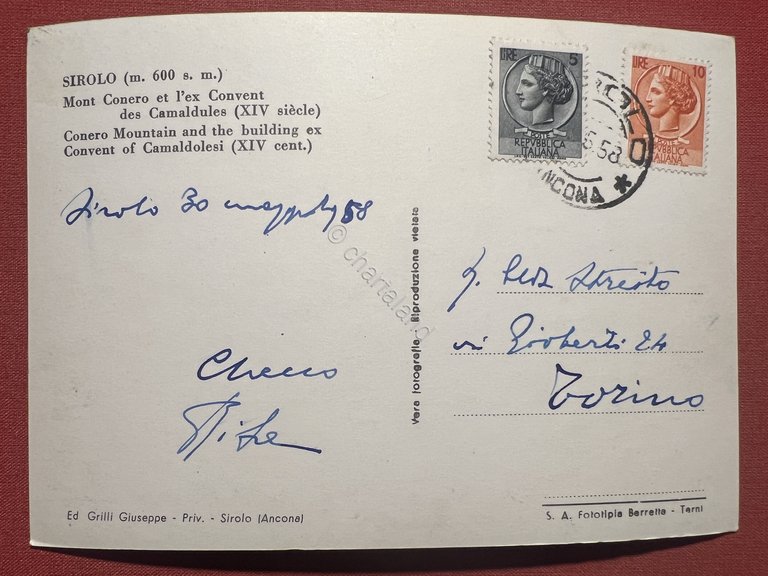 SIROLO (m. 600 s. m.)
Mont Conero et l'ex Convent
des Camaldules (XIV siècle)
Conero Mountain and the building ex
Convent of Camaldolesi (XIV cent.)
LIRE 5
POSTE
REPVBBLICA
ITALIANA
LIRE 10
POSTE
REPVBBLICA
ITALIANA
5.58
ANCONA
Sirolo 30 58
Checco
via Gioberti 24
Torino
Vera fotografia - Riproduzione vietata
© chartaland
Ed Grilli Giuseppe - Priv. - Sirolo (Ancona)
S. A. Fototipia Berretta - Terni